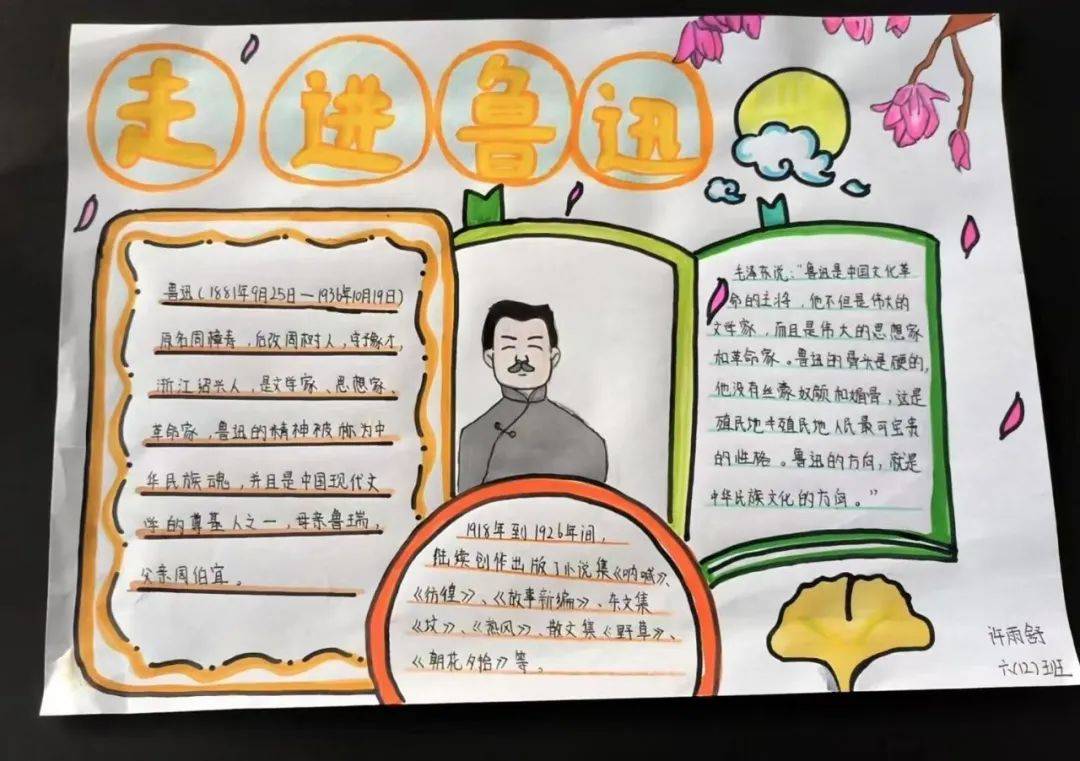 走进鲁迅
鲁迅(1881年9月25日—1936年10月19日)
原名周樟寿,后改周树人,字豫才,
浙江绍兴人,是文学家、思想家、
革命家,鲁迅的精神被称为中
华民族魂,并且是中国现代文
学的尊基人之一,母亲鲁瑞,
父亲周伯宜。
1918年到1926年间,
陆续创作出版了小说集《呐喊》、
《彷徨》、《故事新编》、杂文集
《坟》、《热风》、散文集《野草》、
《朝花夕拾》等。
毛泽东说:“鲁迅是中国文化革
命的主将,他不但是伟大的
文学家,而且是伟大的思想家
和革命家。鲁迅的骨头是硬的,
他没有丝豪奴颜和媚骨,这是
殖民地半殖民地人民最可宝贵
的性格。鲁迅的方向,就是
中华民族文化的方向。”
许雨舒
六(12)班